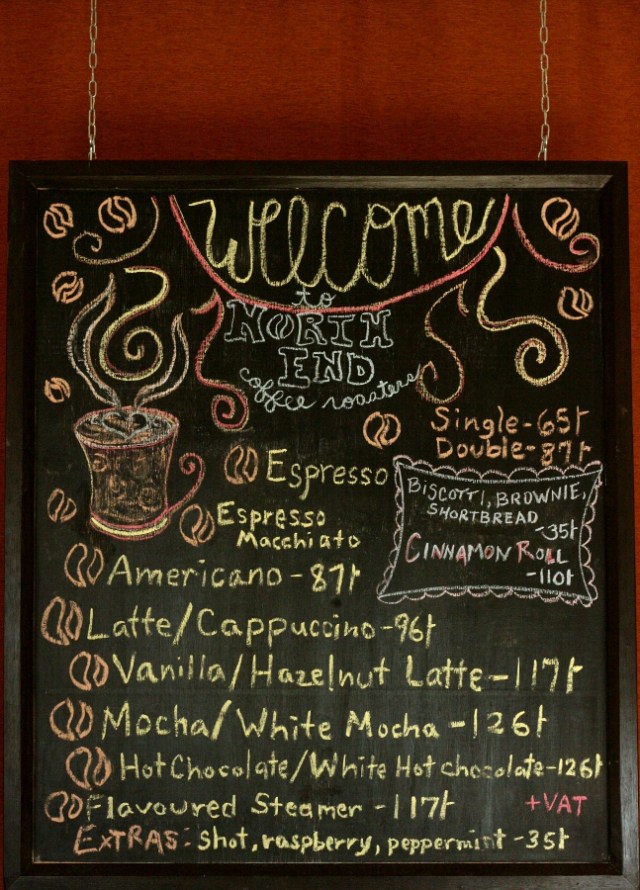 Welcome
to
NORTH
END
coffee roasters
Single-65৳
Double-87৳
Espresso
Espresso
Macchiato
BISCOTTI, BROWNIE,
SHORTBREAD
-35৳
CINNAMON ROLL
-110৳
Americano-87৳
Latte/Cappuccino-96৳
Vanilla/Hazelnut Latte-117৳
Mocha/White Mocha-126৳
Hot Chocolate/White Hot chocolate-126৳
Flavoured Steamer-117৳
+VAT
EXTRAS: Shot, raspberry, peppermint-35৳